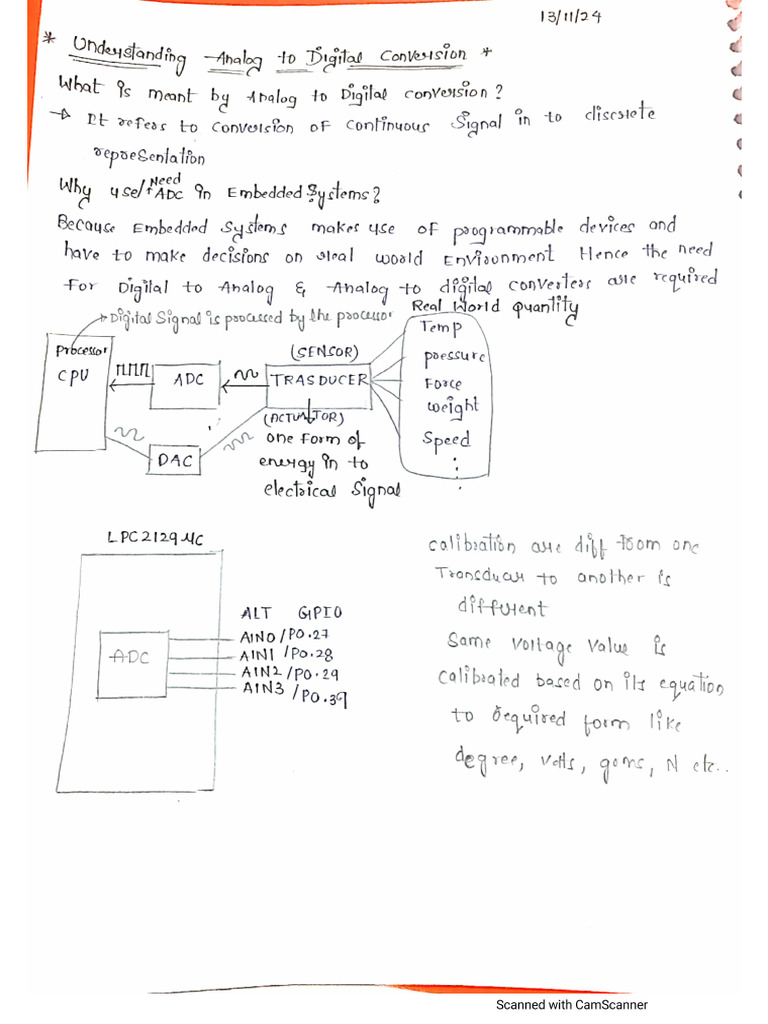 13/11/24
* Understanding Analog to Digital Conversion *
What is meant by Analog to Digital conversion?
→ It refers to conversion of continuous Signal in to discrete
representation
Why use/Need ADC in Embedded Systems?
Because Embedded Systems makes use of programmable devices and
have to make decisions on real world Environment Hence the need
For Digital to Analog & Analog to digital converters are required
Real World quantity
→ Digital Signal is processed by the processor
Processor
CPU
ADC
(SENSOR)
TRASDUCER
(ACTUATOR)
one form of
energy in to
electrical Signal
DAC
Temp
pressure
Force
weight
Speed
LPC2129 MC
ADC
ALT GPIO
AIN0/P0.27
AIN1/P0.28
AIN2/P0.29
AIN3/P0.39
calibration are diff from one
Transducer to another is
different
Same voltage value is
calibrated based on its equation
to required form like
degree, volts, goms, N etc..
Scanned with CamScanner